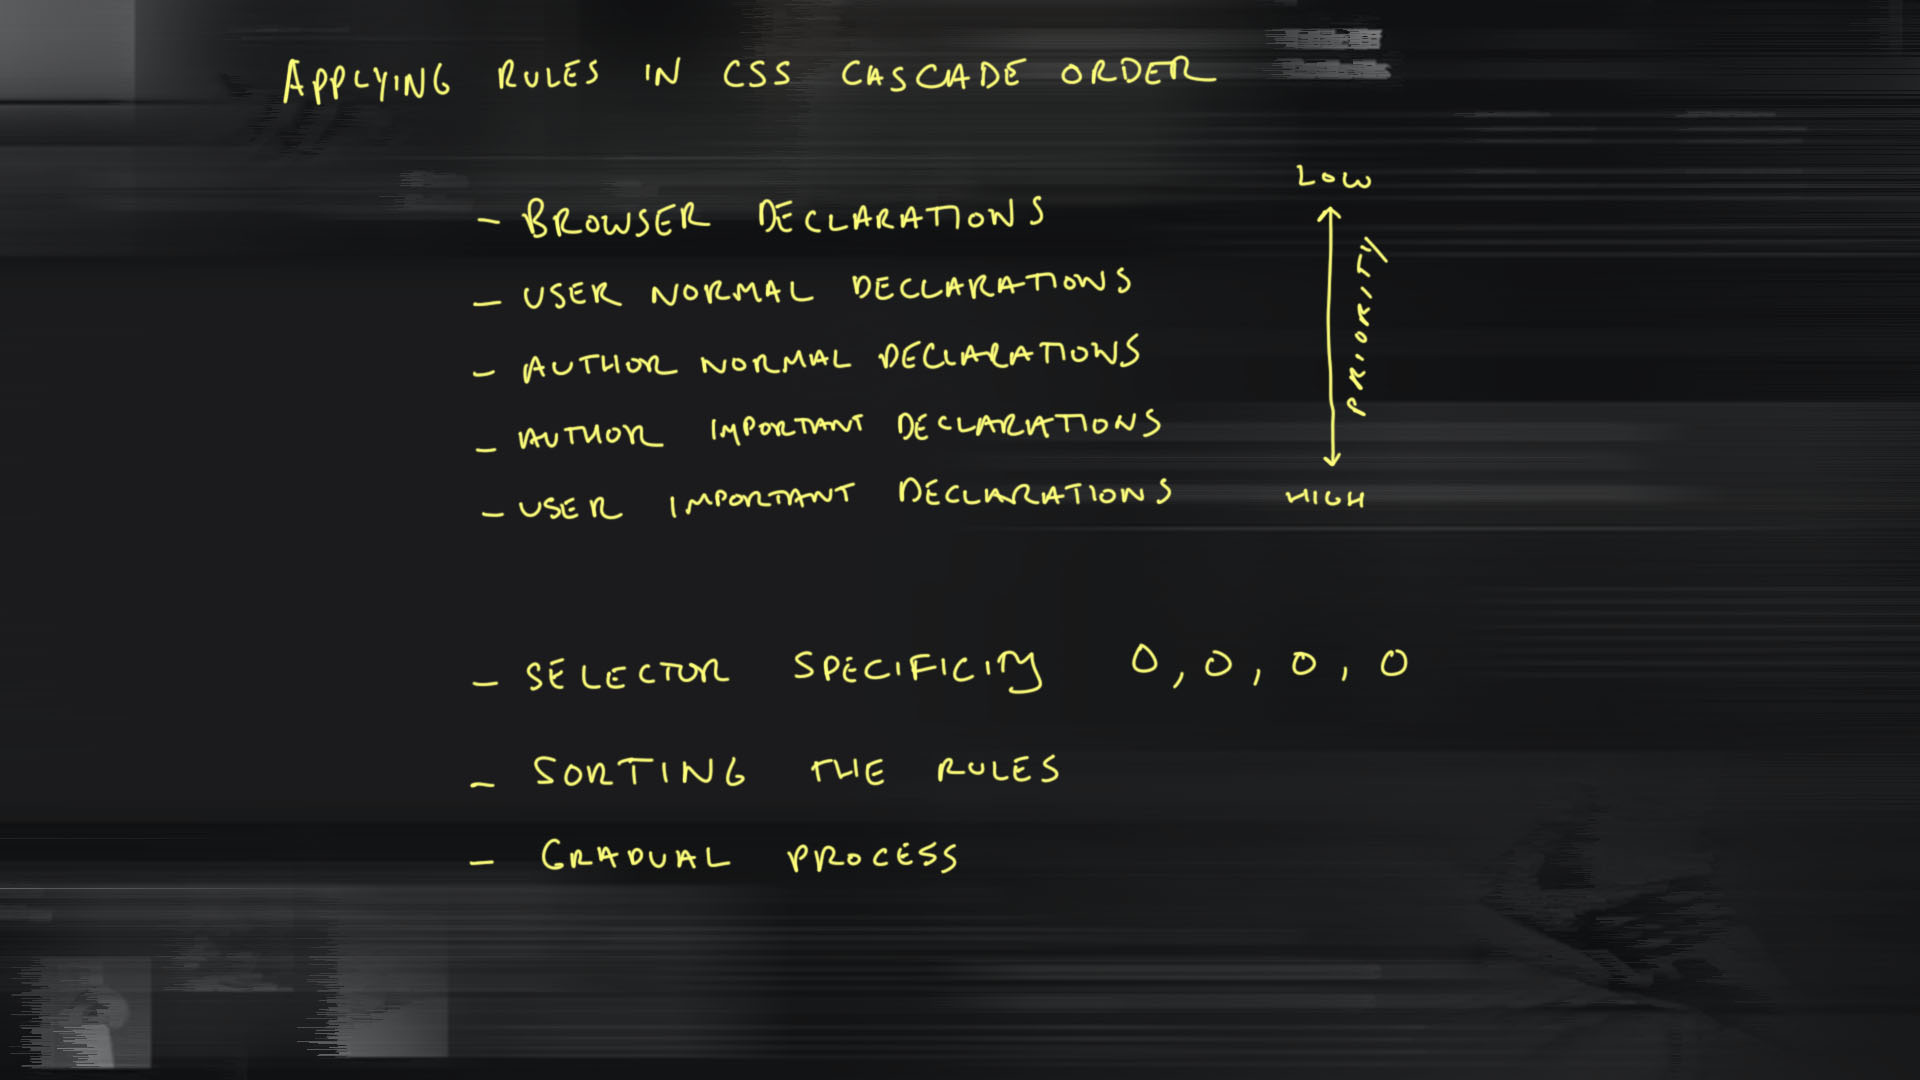 APPLYING RULES IN CSS CASCADE ORDER
LOW
- BROWSER DECLARATIONS
- USER NORMAL DECLARATIONS
PRIORITY
- AUTHOR NORMAL DECLARATIONS
- AUTHOR IMPORTANT DECLARATIONS
- USER IMPORTANT DECLARATIONS
HIGH
- SELECTOR SPECIFICITY 0, 0, 0, 0
- SORTING THE RULES
- GRADUAL PROCESS